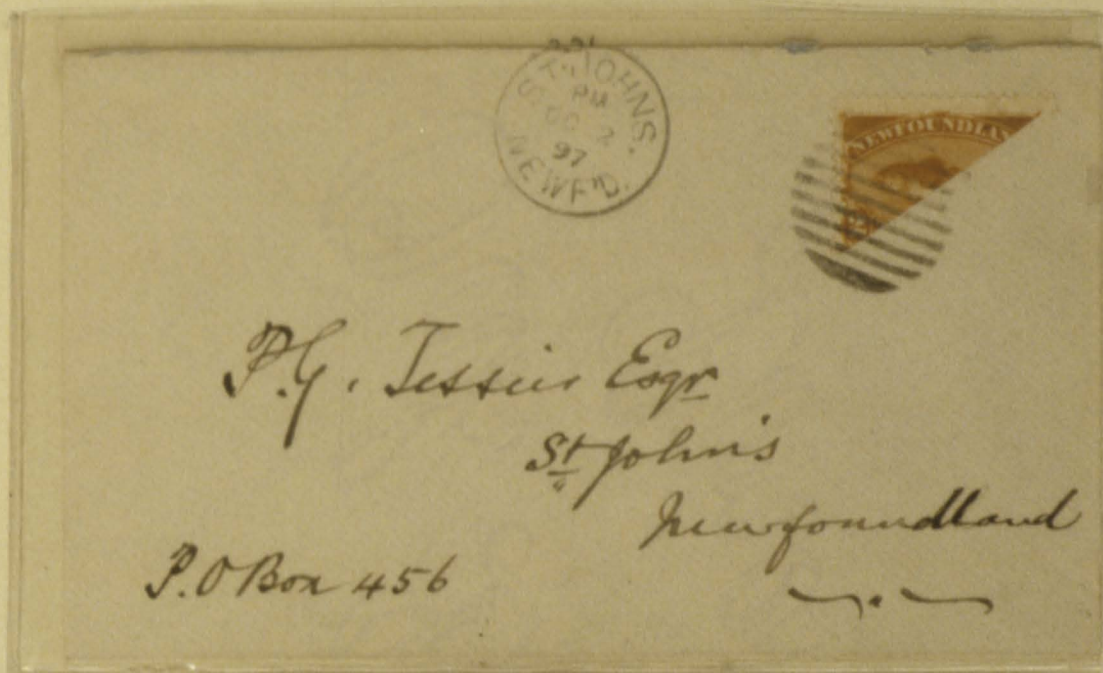 ST. JOHNS.
PM
2
97
NEWF'D.
NEWFOUNDLAN
P.G. Tessier Esqr
St Johns
Newfoundland
P.O Box 456